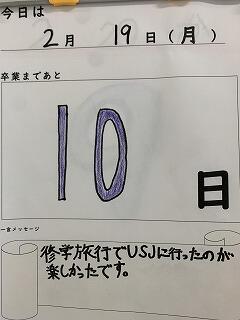 今日は
2月 19日(月)
卒業まであと
10
日
一言メッセージ
修学旅行でUSJに行ったのが
楽しかったです。